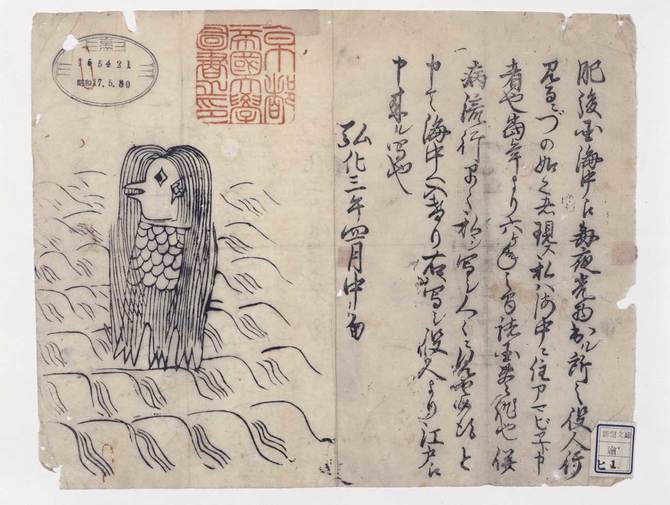 肥後国海中え毎夜光物出ル所之役人行
見るニづの如く者現ス私ハ海中ニ住アマビヱト申
者也當年より六ヶ年之間諸国豊作也併
病流行早々私ヲ写シ人々ニ見セ候得と
申て海中へ入けり右写シ役人より江戸え
申来ル写也
弘化三年四月中旬
京都
帝國大學
圖書之印
昭和17.5.30
新聞文庫
繪